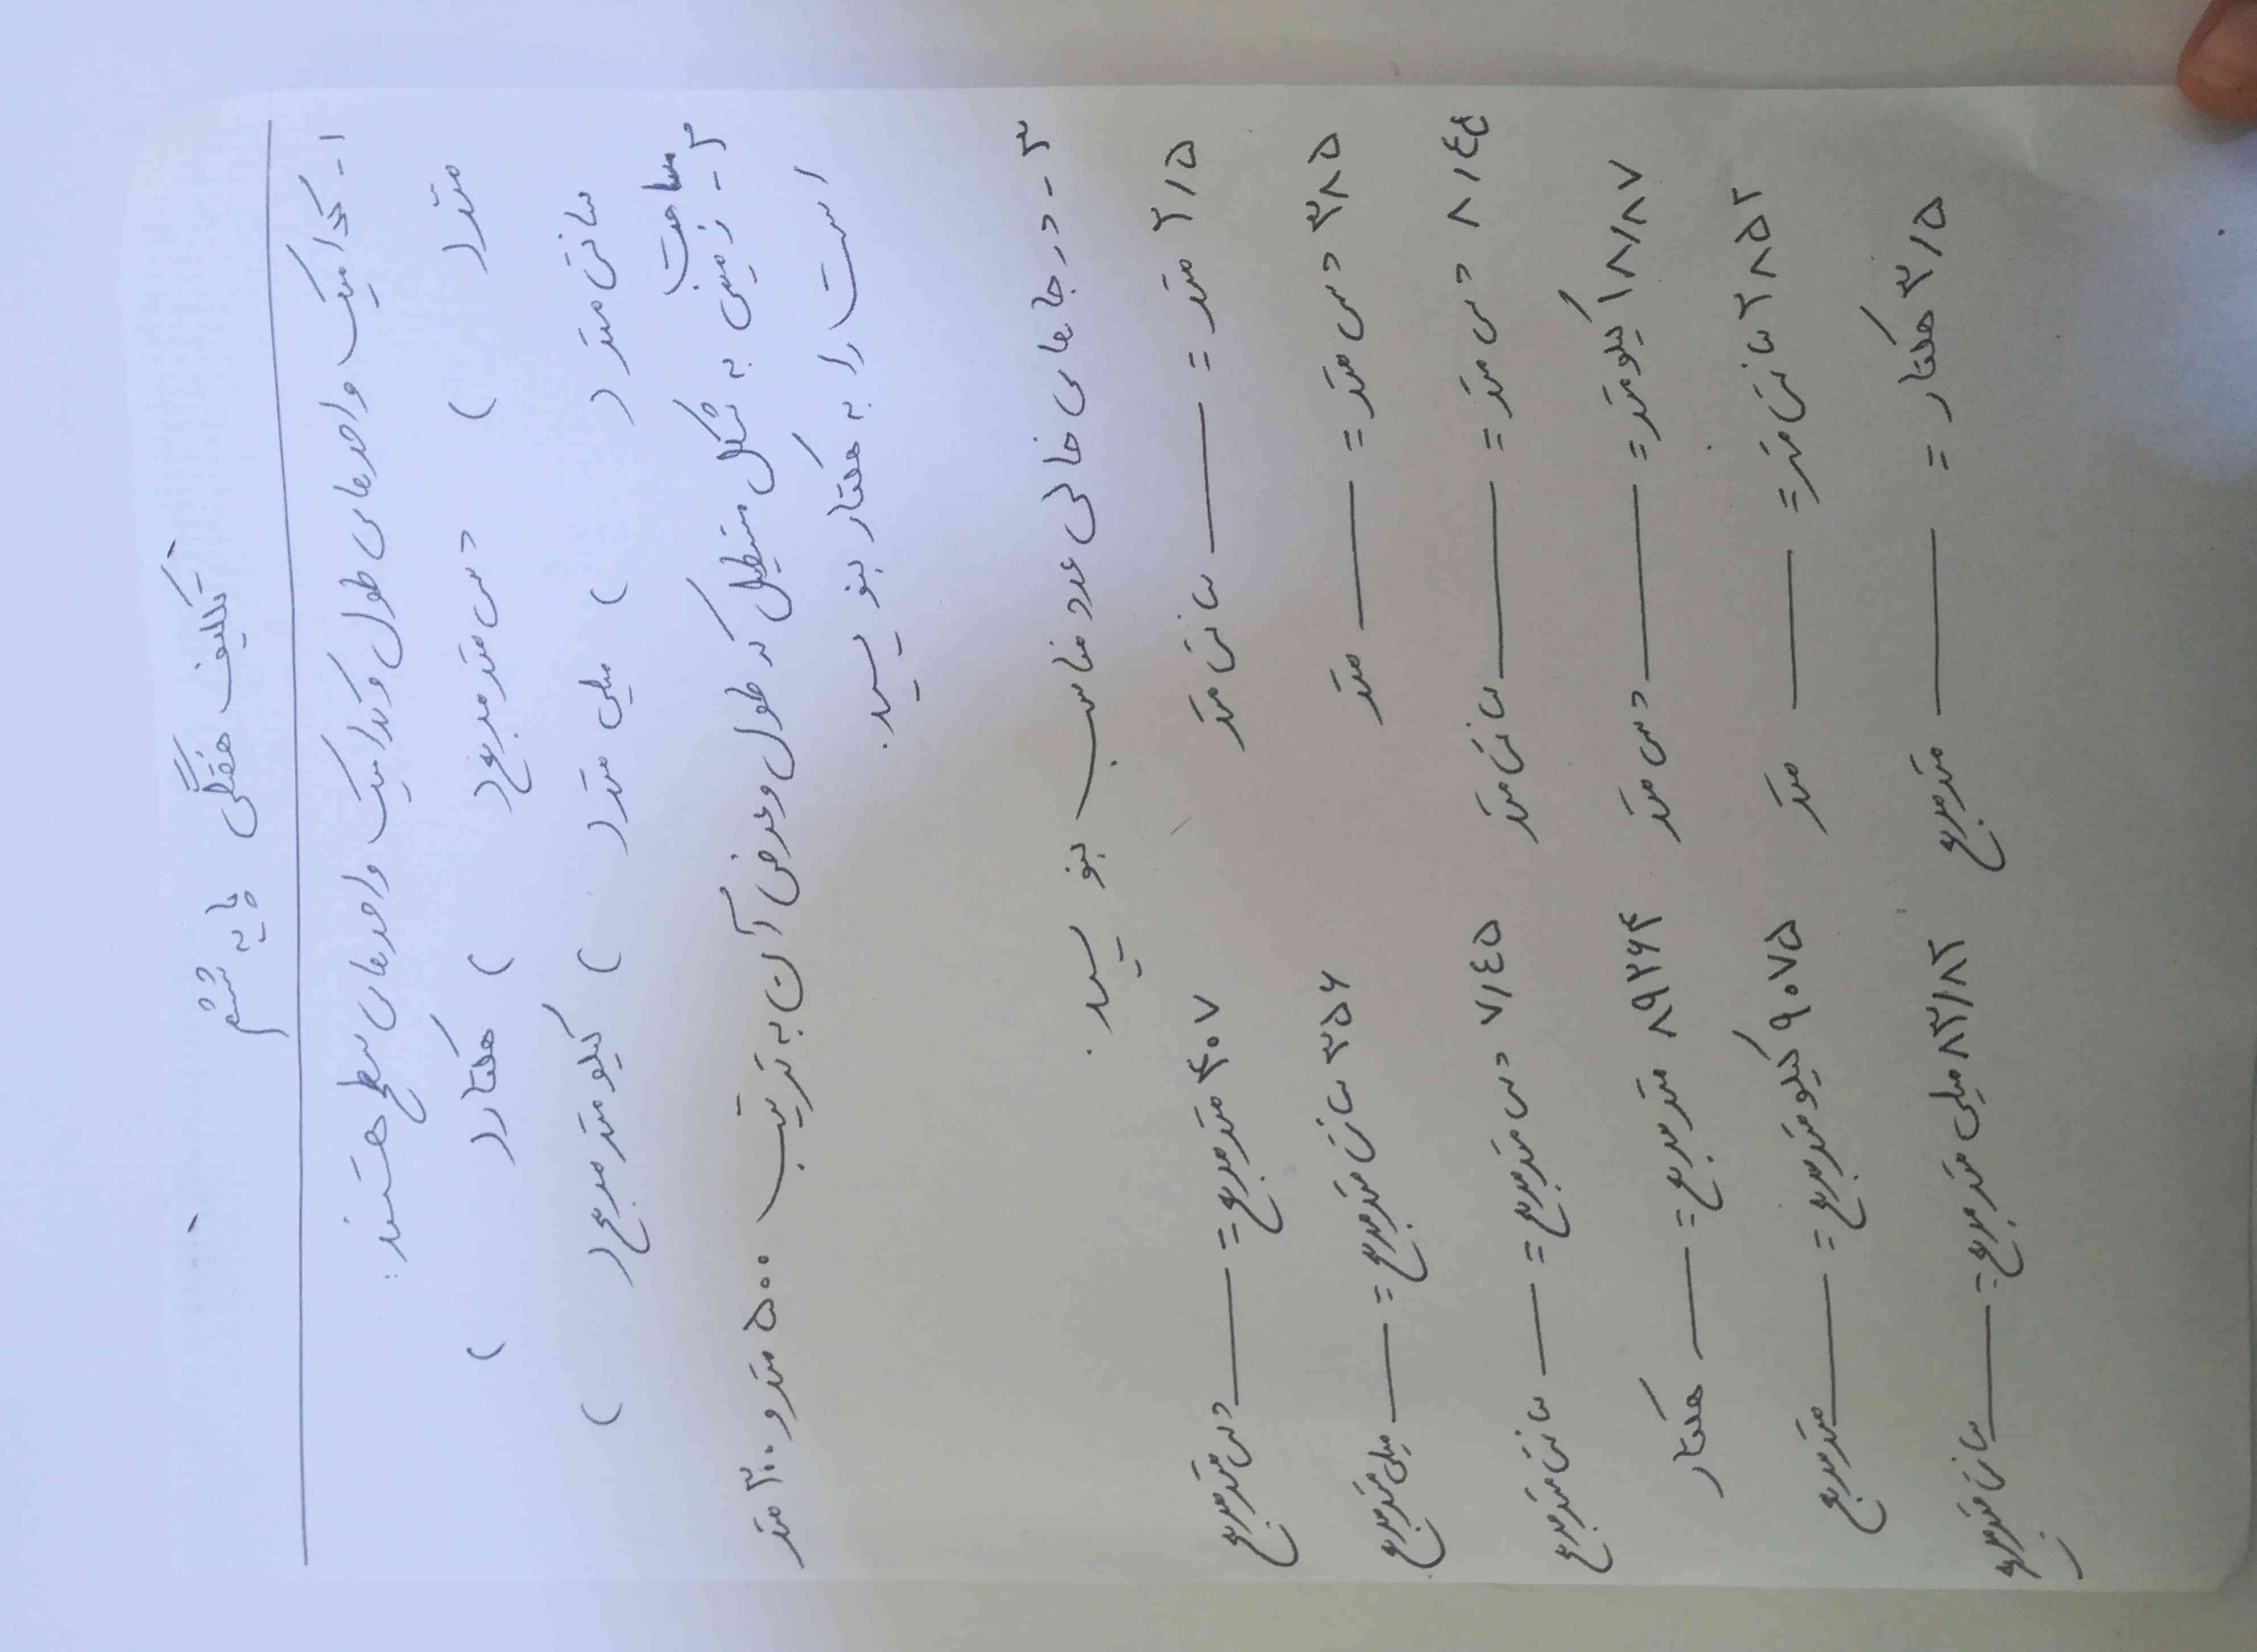 تکلیف هفتگی پایه ششم
۱- کدامیک واحدهای طول وکدامیک واحدهای سطح هستند:
متر( ) دسی متر مربع( ) هکتار( )
سانتی متر ( ) میلی متر( ) کیلو متر مربع( )
مساحت
۲- زمینی به شکل مستطیل که طول وعرض آن به ترتیب ۵۰۰ متر و ۳۰۰ متر
است را به هکتار بنویسید.
۳- در جاهای خالی عدد مناسب بنویسید.
۲/۵ متر = ـــــ سانتی متر ۴۰۷ متر مربع = ـــــ دسی متر مربع
۳۸۵ دسی متر = ـــــ متر ۳۵۶ سانتی متر مربع = ـــــ میلی متر مربع
۸/٤۵ دسی متر = ـــــ سانتی متر ۷/٤۵ دسی متر مربع = ـــــ سانتی متر مربع
۱۸/۸۷ کیلومتر = ـــــ دسی متر ۸۹۲۶۴ متر مربع = ـــــ هکتار
۲۸۵۲ سانتی متر = ـــــ متر ۹۰۷۵ کیلو متر مربع = ـــــ متر مربع
۳/۵ هکتار = ـــــ متر مربع ۸۳/۸۲ میلی متر مربع = ـــــ سانتی متر مربع